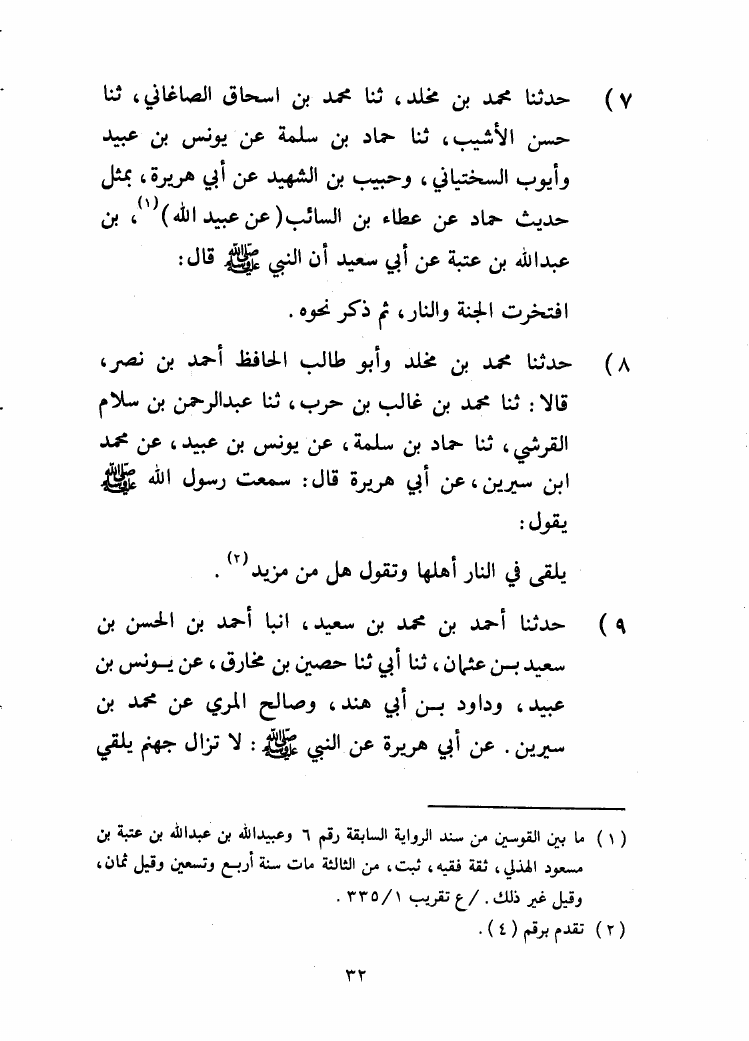 ٧) حدثنا محمد بن مخلد، ثنا محمد بن اسحاق الصاغاني، ثنا
حسن الأشيب، ثنا حماد بن سلمة عن يونس بن عبيد
وأيوب السختياني، وحبيب بن الشهيد عن أبي هريرة، بمثل
حديث حماد عن عطاء بن السائب (عن عبيد الله)(١)، بن
عبدالله بن عتبة عن أبي سعيد أن النبي ﷺ قال:
افتخرت الجنة والنار، ثم ذكر نحوه.
٨) حدثنا محمد بن مخلد وأبو طالب الحافظ أحمد بن نصر،
قالا: ثنا محمد بن غالب بن حرب، ثنا عبدالرحمن بن سلام
القرشي، ثنا حماد بن سلمة، عن يونس بن عبيد، عن محمد
ابن سيرين، عن أبي هريرة قال: سمعت رسول الله ﷺ
يقول:
يلقى في النار أهلها وتقول هل من مزيد(٢).
٩) حدثنا أحمد بن محمد بن سعيد، انبا أحمد بن الحسن بن
سعيد بن عثمان، ثنا أبي ثنا حصين بن مخارق، عن يونس بن
عبيد، وداود بن أبي هند، وصالح المري عن محمد بن
سيرين. عن أبي هريرة عن النبي ﷺ: لا تزال جهنم يلقي
(١) ما بين القوسين من سند الرواية السابقة رقم ٦ وعبيدالله بن عبدالله بن عتبة بن
مسعود الهذلي، ثقة فقيه، ثبت، من الثالثة مات سنة أربع وتسعين وقيل ثمان،
وقيل غير ذلك. /ع تقريب ٣٣٥/١.
(٢) تقدم برقم (٤).
٣٢